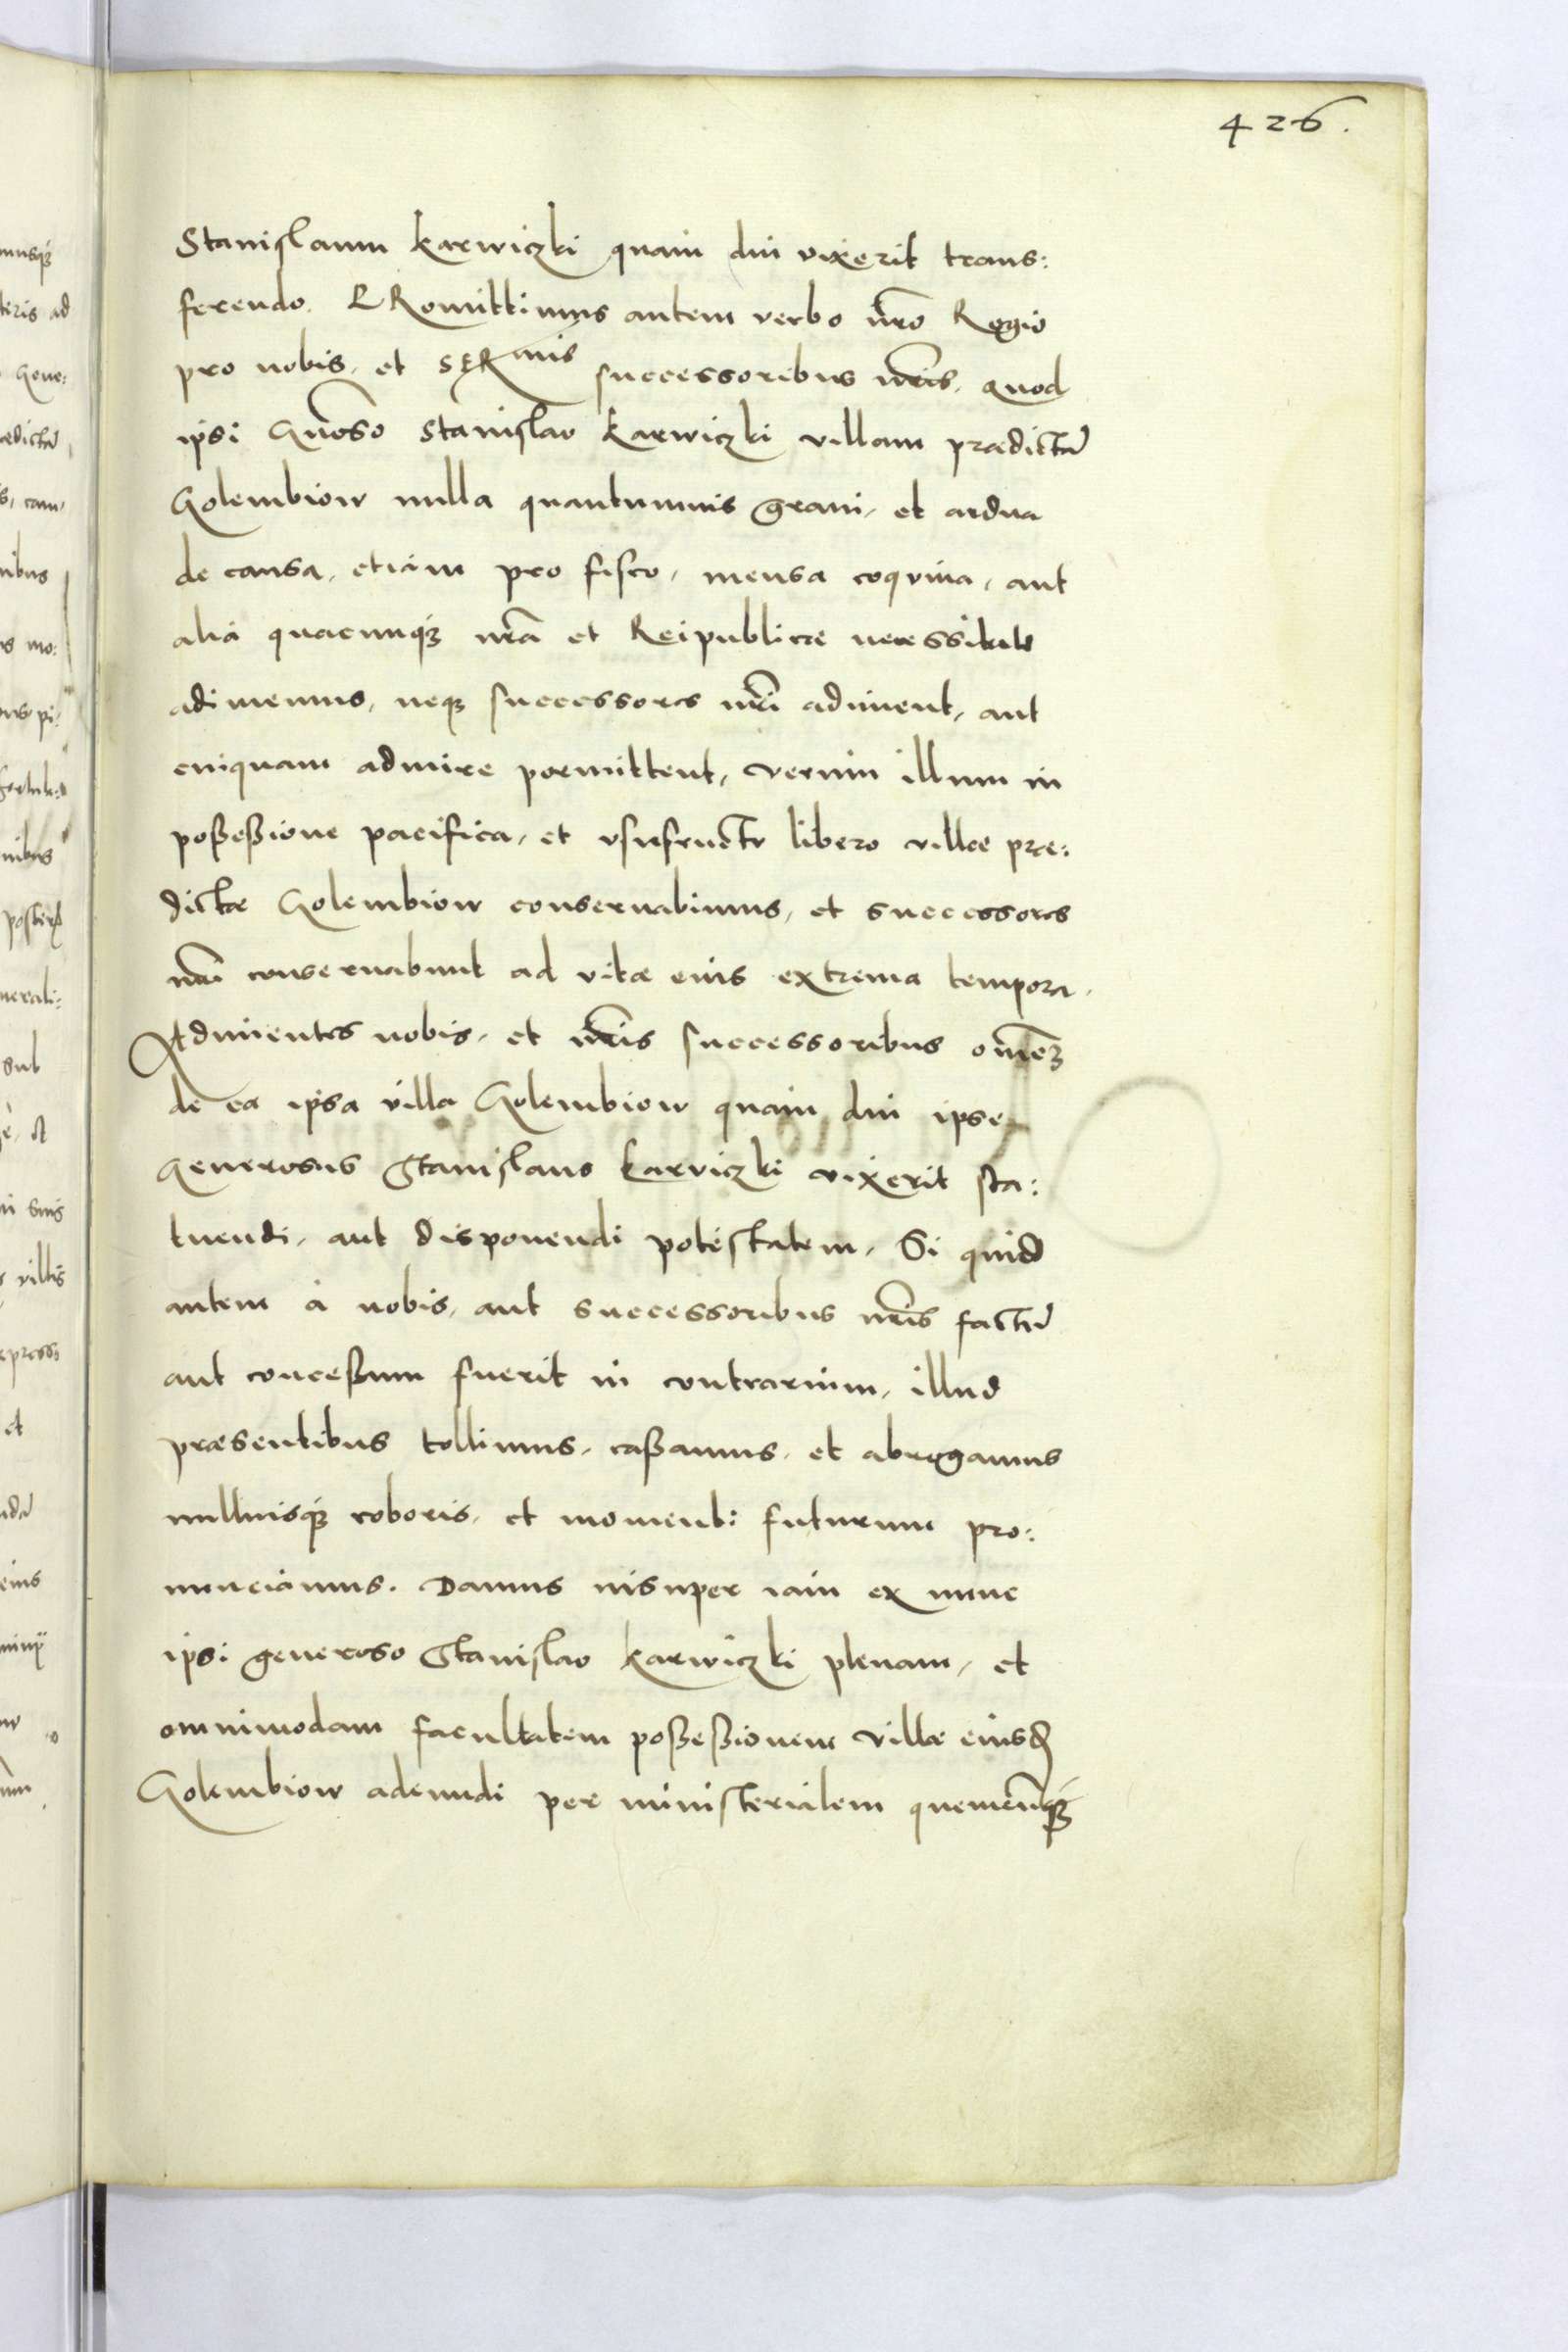 426.
Stanislaum Karwiczki quam diu vixerit trans:
ferendo. PRomittimus autem verbo nr̃o Regio
pro nobis, et SERmis successoribus nr̃is, quod
ipsi Gñoso Stanislao Karwiczki villam prædictã
Golembiow nulla quantumuis graui, et ardua
de causa, etiam pro fisco, mensa coquina, aut
alia quacunqȝ nr̃a et Reipublicæ necessitate
adimemus, neqȝ successores nr̃i adiment, aut
cuiquam adimire permittent, verum illum in
poßeßione pacifica, et vsufructu libero villæ præ:
dictæ Golembiow conseruabimus, et successores
nr̃i conseruabunt ad vitæ eius extrema tempora.
Adimentes nobis, et nr̃is successoribus om̃eȝ
de ea ipsa villa Golembiow quam diu ipse
Generosus Stanislaus Karviczki vixerit sta:
tuendi, aut disponendi potestatem, Si quid
autem à nobis, aut successoribus nr̃is factũ
aut conceßum fuerit in contrarium, illud
præsentibus tollimus, caßamus, et abrogamus
nulliusqȝ roboris, et momenti futurum pro:
nunciamus. Damus insuper iam ex nunc
ipsi generoso Stanislao Karwiczki plenam, et
omnimodam facultatem poßeßionem villæ eiusd
Golembiow adeundi per ministerialem quemcũqȝ